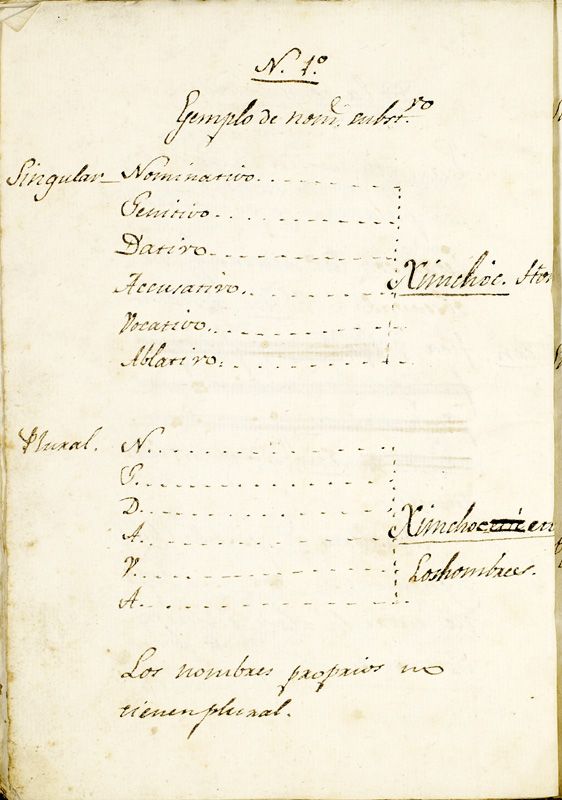 N. 1º
Ejemplo de nomᵉ. subst.ᵛᵒ
Singular Nominativo
Genitivo
Dativo
Accusativo Ximchoc. Hom
Vocativo
Ablativo
Plural. N.
G.
D.
A. Ximchoc en
V. Los hombres.
A.
Los nombres proprios no
tienen plural.